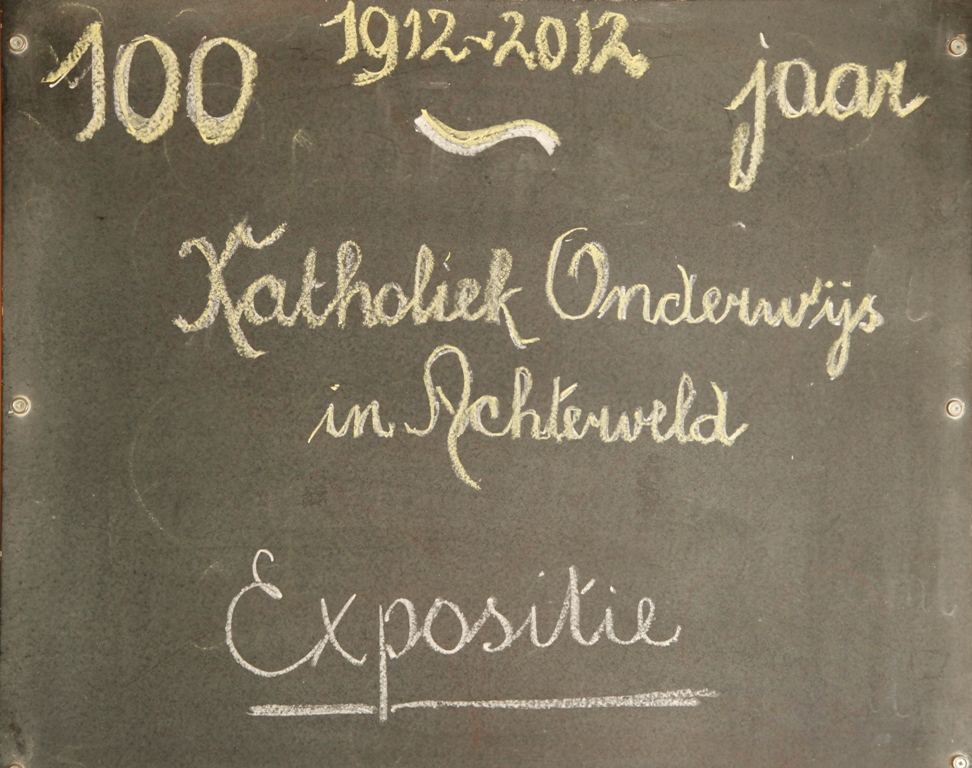 100 1912~2012 jaar
Katholiek Onderwijs
in Achterveld
Expositie